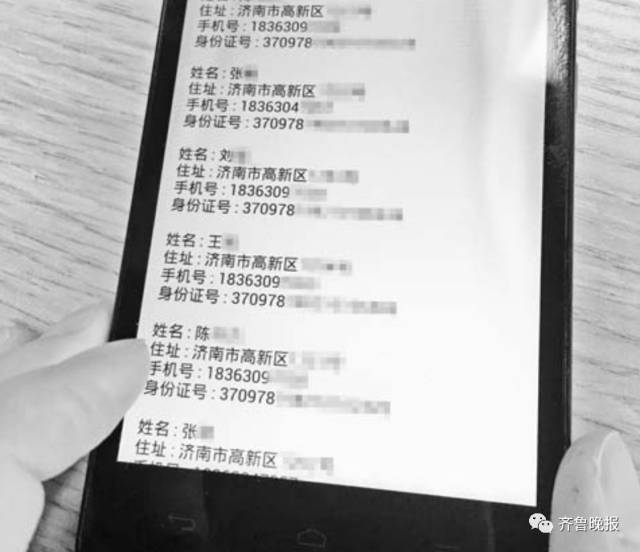 住址：济南市高新区
手机号：1836309
身份证号：370978
姓名：张
住址：济南市高新区
手机号：1836304
身份证号：370978
姓名：刘
住址：济南市高新区
手机号：1836309
身份证号：370978
姓名：王
住址：济南市高新区
手机号：1836309
身份证号：370978
姓名：陈
住址：济南市高新区
手机号：1836309
身份证号：370978
姓名：张
住址：济南市高新区
齐鲁晚报